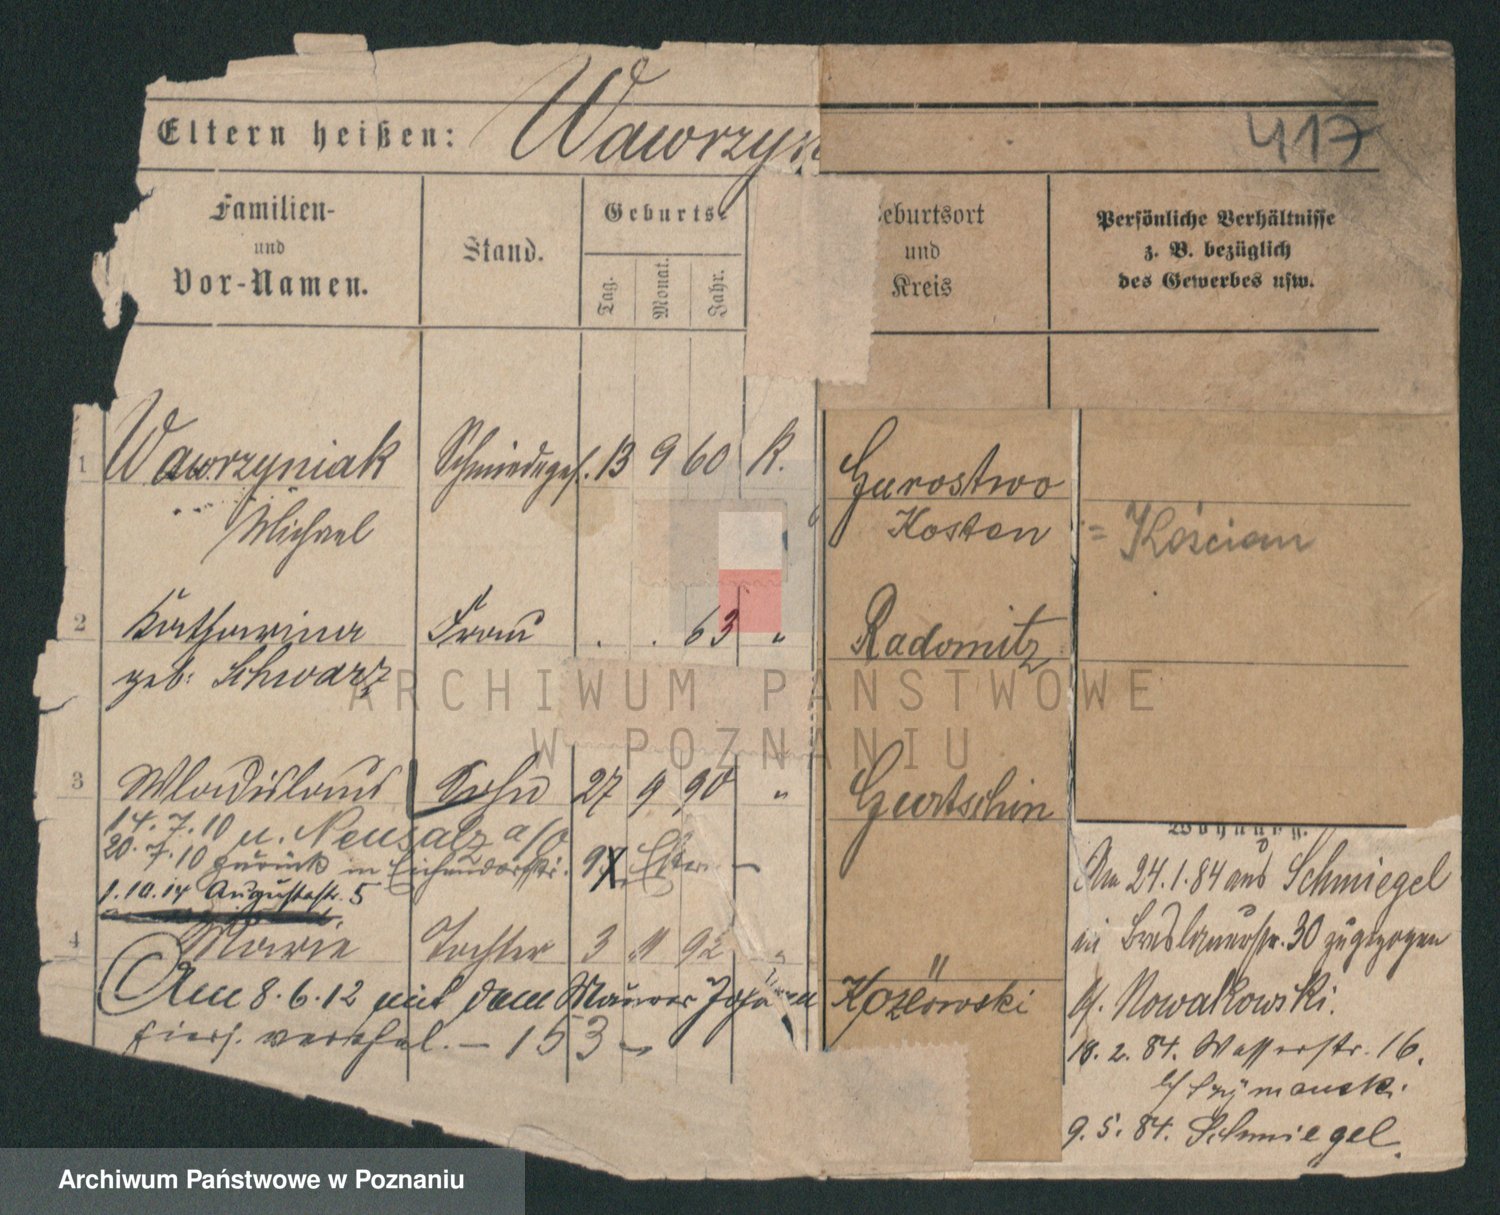 417
Eltern heißen: Wawrzyn
Familien-
und
Vor-Namen.
Stand.
Geburts-
Tag.
Monat.
Jahr.
eburtsort
und
Kreis
Persönliche Verhältnisse
z. B. bezüglich
des Gewerbes usw.
1 Wawrzyniak Schmiedeges. 13 9 60 K. Gurostwo
Michael Kosten = Kościan
2 Katharina Frau . . 63 " Radomitz
geb: Schwarz
3 Wladislaus Sohn 27 9 90 " Gurtschin
14.7.10 n. Neusalz a/O
20.7.10 zurück in Eichendorffstr.
1.10.14 Augustastr. 5
4 Marie Tochter 3 11 92 " "
Am 8.6.12 mit dem Maurer Kozlowski
hiers. verehel. – 153 –
Wohnung.
Am 24.1.84 aus Schmiegel
in Breslauerstr. 30 zugezogen
b/ Nowakowski.
18.2.84. Wasserstr. 16.
b/ Szymanski.
9.5.84. Schmiegel.
ARCHIWUM PAŃSTWOWE
W POZNANIU
Archiwum Państwowe w Poznaniu